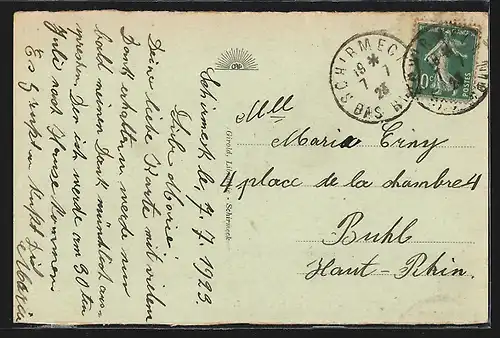 Schirmeck le, 7.7.1923.
Liebe Marie!
Deine liebe Karte mit vielem
Dank erhalten, u. werde nun
bald meinen Dank mündlich aus-
sprechen. Den ich werde am 30 ten
Juli nach Hause kommen
Es grüßt u. küßt Dich
Maria
Girold, Schirmeck
SCHIRMECK
19 * 7
7 23
BAS RHIN
POSTES
Mlle
Maria Erny
4 place de la chambre 4
Buhl
Haut-Rhin.